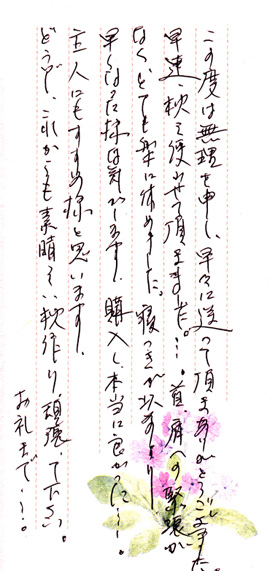 この度は無理を申し、早々に送って頂きありがとうございました。
早速、枕を使わせて頂きました…。首、肩への緊張が
なく、とても楽に休めました。寝つきが以前より
早くなった様な気がします。購入し、本当に良かった…。
主人にもすすめ様と思います。
どうぞ、これからも素晴らしい枕作り、頑張って下さい。
お礼まで…。